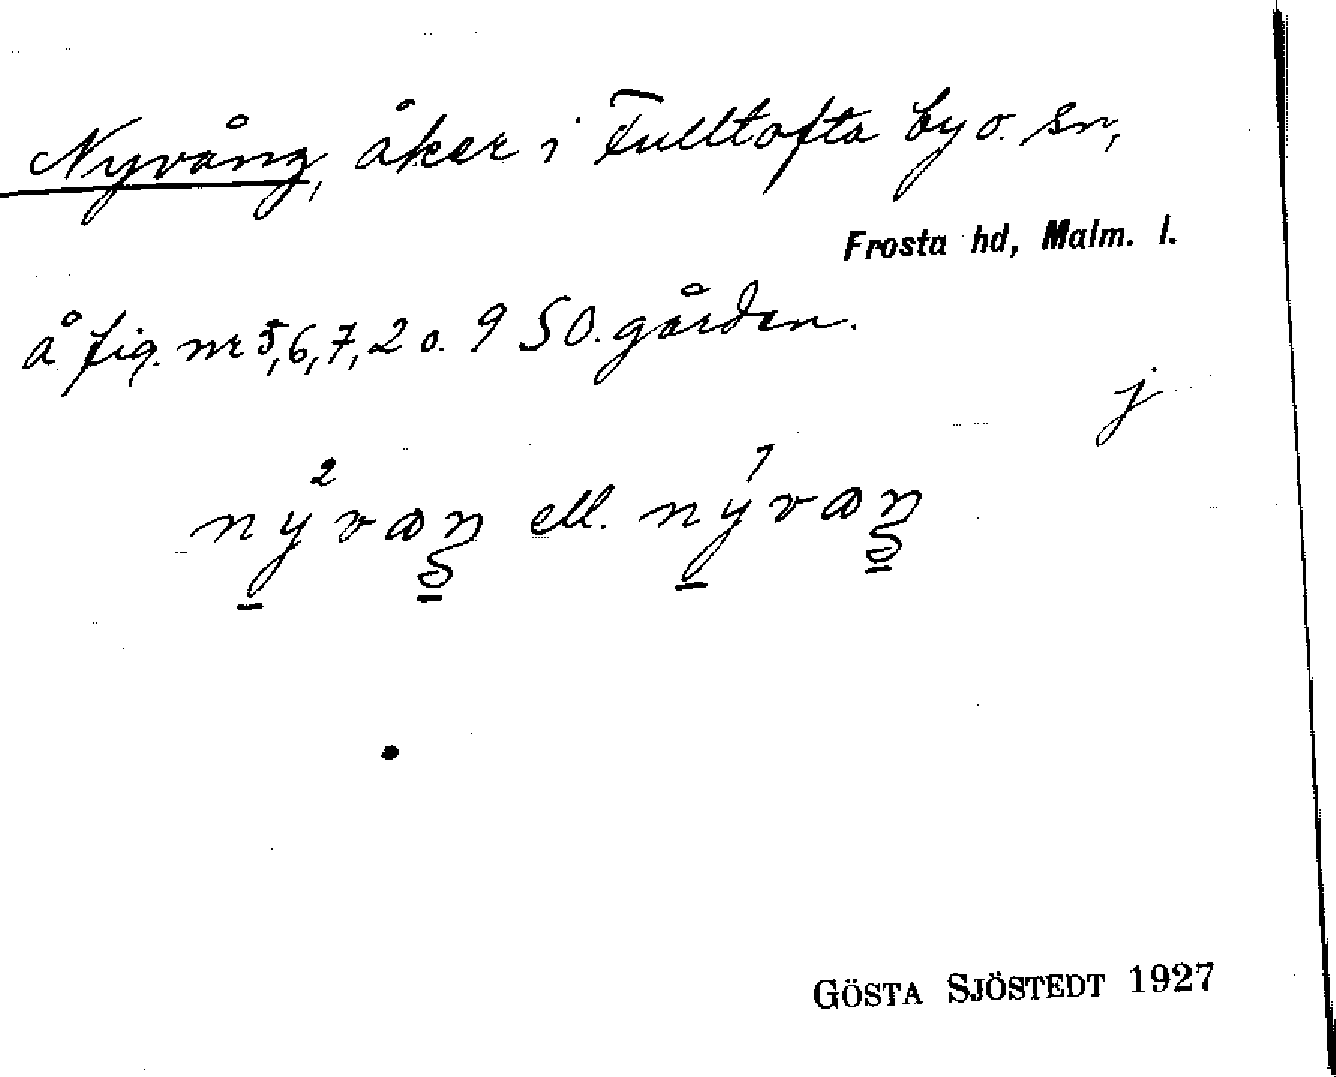 Nyvång, åker i Fulltofta by o. sn,
Frosta hd, Malm. l.
å fig. nr 5, 6, 7, 2 o. 9 SO. gården.
j
ny²vaŋ ell. ny¹vaŋ
GÖSTA SJÖSTEDT 1927